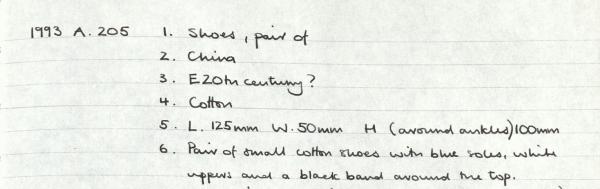 1993 A.205 1. Shoes, pair of
2. China
3. E20th century?
4. Cotton
5. L. 125mm W. 50mm H (around ankles) 100mm
6. Pair of small cotton shoes with blue soles, white
uppers and a black band around the top.